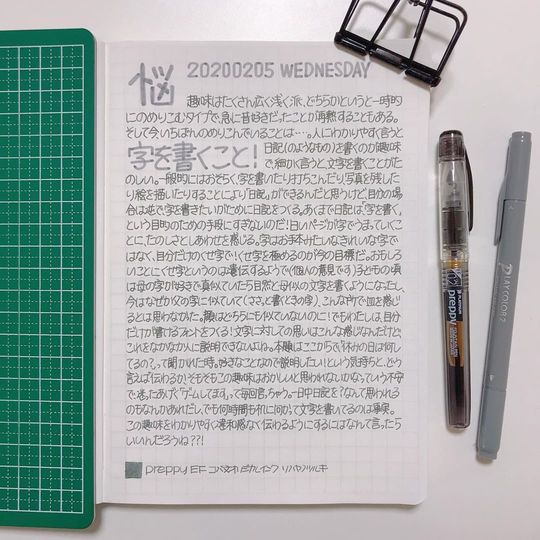 20200205 WEDNESDAY
悩
趣味はたくさん広く浅く派、どちらかというと一時的
にのめりこむタイプで、急に昔好きだったことが再熱することもある。
そして今いちばんのめりこんでいることは…。人にわかりやすく言うと
字を書くこと!
日記(のようなもの)を書くのが趣味
で、細かく言うと、文字を書くことがた
のしい。一般的にはおそらく、字を書いたり打ちこんだり写真を残した
り絵を描いたりすることにより「日記」ができるんだと思うけど、自分の場
合は逆で、字を書きたいがために日記をつくる。あくまで日記は、「字を書く」
という目的のための手段にすぎないのだ!白いページが字でうまっていくこ
とに、たのしさとしあわせを感じる。字はお手本みたいなきれいな字で
はなく、自分だけのくせ字で!くせ字を極めるのが今の目標だ。おもしろ
いことにくせ字というのは遺伝するようで(個人の意見です)子どもの頃
は母の字が好きで真似ていたら自然と母似の文字を書くようになったし、
今はなぜか父の字に似ていて(ささっと書くときの字)、こんな所で血を感じ
るとは思わなかった。顔はどちらにも似ていないのに!でもわたしは、自分
だけが書けるフォントをつくる!文字に対しての思いはこんな感じなんだけど、
これをなかなか人に説明できないよね。本題はここからで、「休みの日は何し
てるの?」って聞かれた時。好きなことなので説明したい!という気持ちと、どう
言えば伝わるか!そもそもこの趣味はおかしいと思われないかなっていう不安
で、迷ったあげく「ゲームしてます」って毎回言っちゃう。一日中日記を?なんて思われる
のもなんかあれだし。でも何時間も机に向かって文字を書いてるのは事実。
この趣味をわかりやすく違和感なく伝わるようにするにはなんて言ったら
いいんだろうね??!
preppy EF
preppy
PLAYCOLOR 2